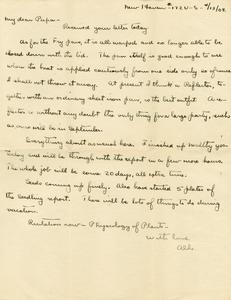 New Haven
My dear Papa:-
Received your letter today
As for the Fry pan, it is warped and no longer able to be
closed down with the lid. The pan itself is good enough to use
when the heat is applied cautiously from one side only so of
I shall not throw it away. At present I think a Reflector, to-
gether with an ordinary sheet iron pan, is the best outfit. A re-
flector is without any doubt the only thing for a large party, such
as one will be in September.
Everything about as usual here. I
today and will be through with the report in a few more hours
The whole job will be some 20 days, all extra time.
Seeds coming up finely. Also have started 5 plates of
the seedling report. There will be lots of things to do during
vacation.
Recitation now - Physiology of Plants -
With love